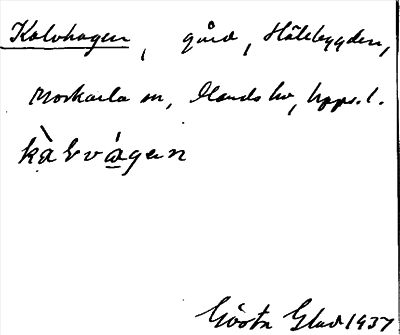 Kalvhagen, gård, Hållebygden,
Morkarla sn, Olands hd, Upps. l.
kàlvágan
Gösta Glad 1937